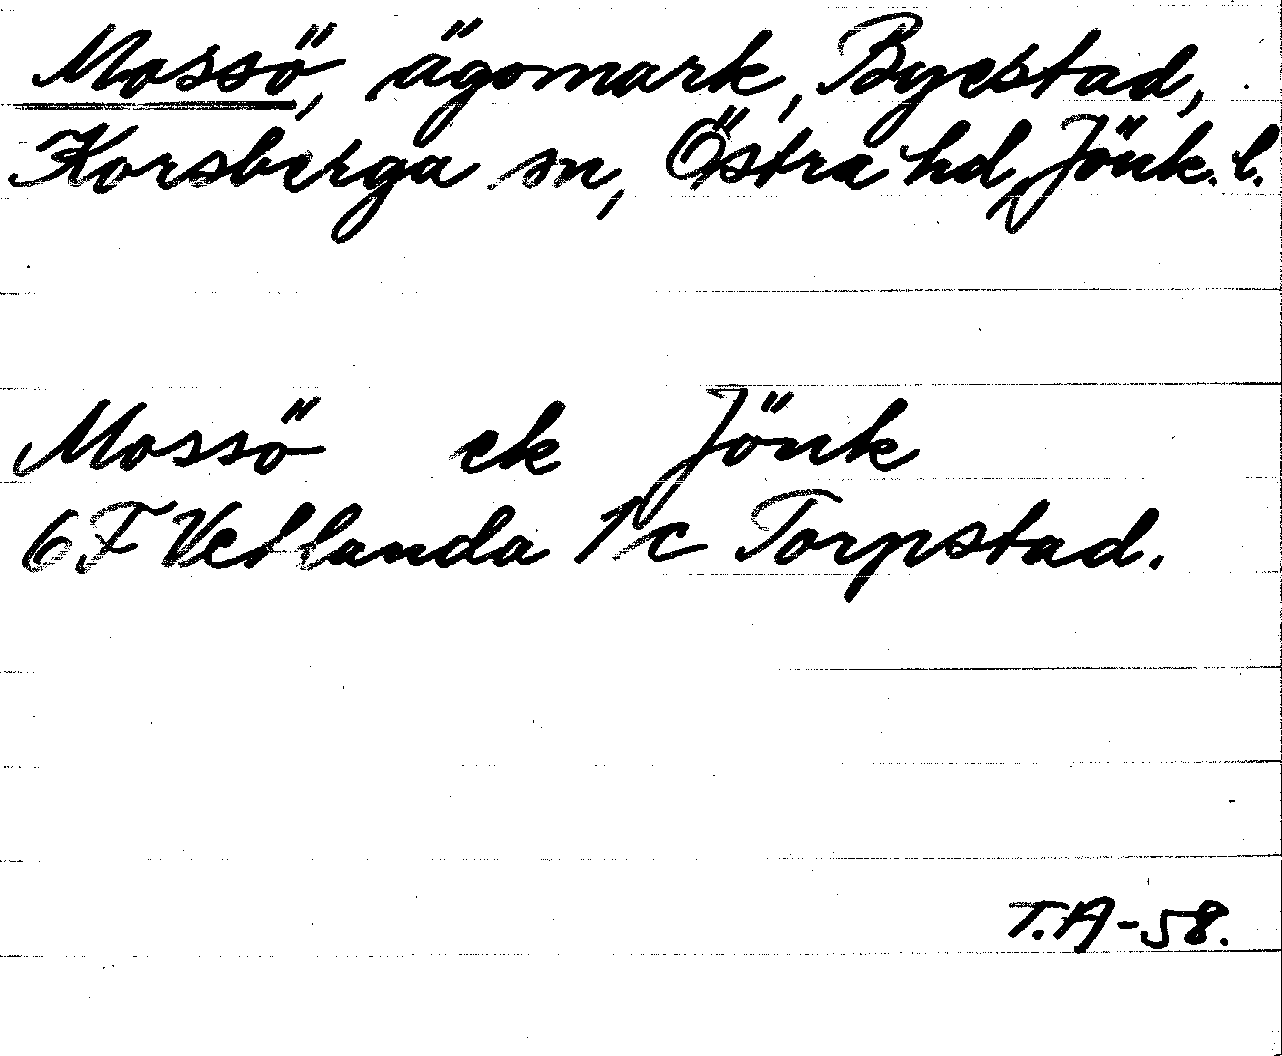 Mossö, ägomark, Byestad,
Korsberga sn, Östra hd, Jönk. l.
Mossö ek Jönk
6F Vetlanda 1c Torpstad.
T.A-58.